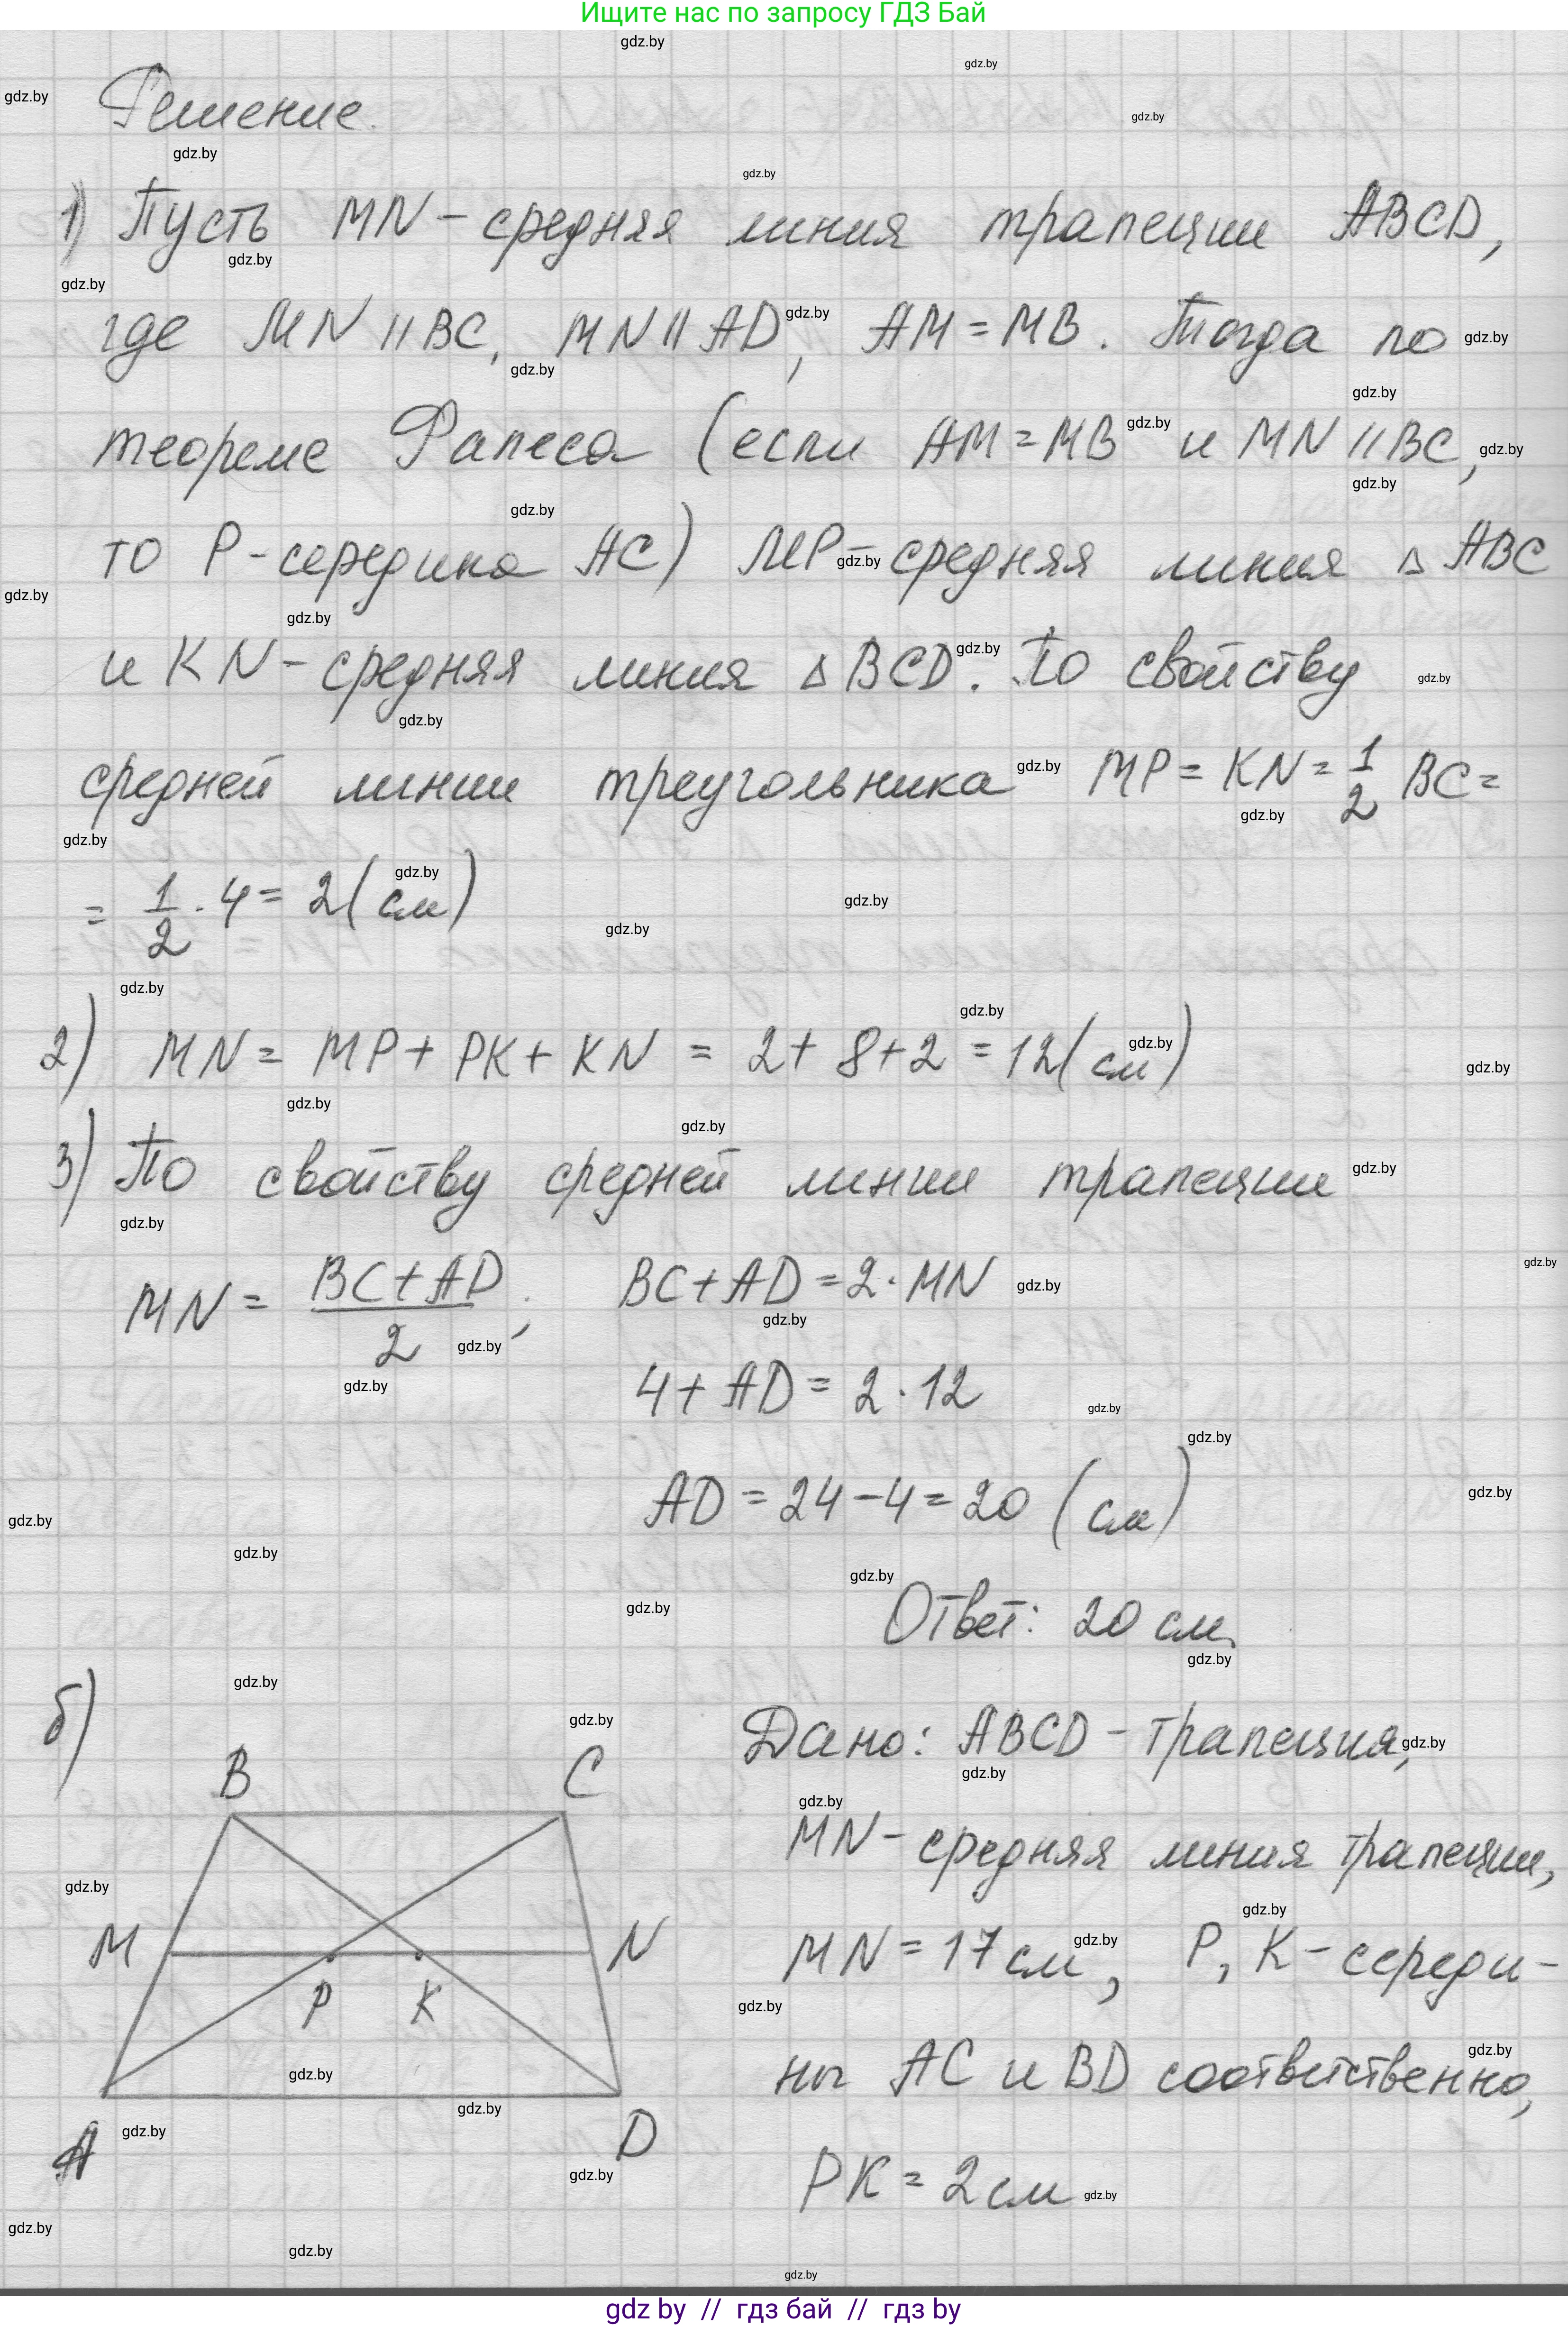 Ищите нас по запросу ГДЗ Бай
Решение.
1) Пусть MN - средняя линия трапеции ABCD,
где MN || BC, MN || AD, AM = MB. Тогда по
теореме Фалеса (если AM = MB и MN || BC,
то P - середина AC) MP - средняя линия △ ABC
и KN - средняя линия △ BCD. По свойству
средней линии треугольника MP = KN = 1/2 BC =
= 1/2 · 4 = 2 (см)
2) MN = MP + PK + KN = 2 + 8 + 2 = 12 (см)
3) По свойству средней линии трапеции
MN = (BC + AD)/2; BC + AD = 2 · MN
4 + AD = 2 · 12
AD = 24 - 4 = 20 (см)
Ответ: 20 см.
б)
B C
M N
P K
A D
Дано: ABCD - трапеция,
MN - средняя линия трапеции,
MN = 17 см, P, K - середи-
ны AC и BD соответственно,
PK = 2 см
gdz by // гдз бай // гдз by